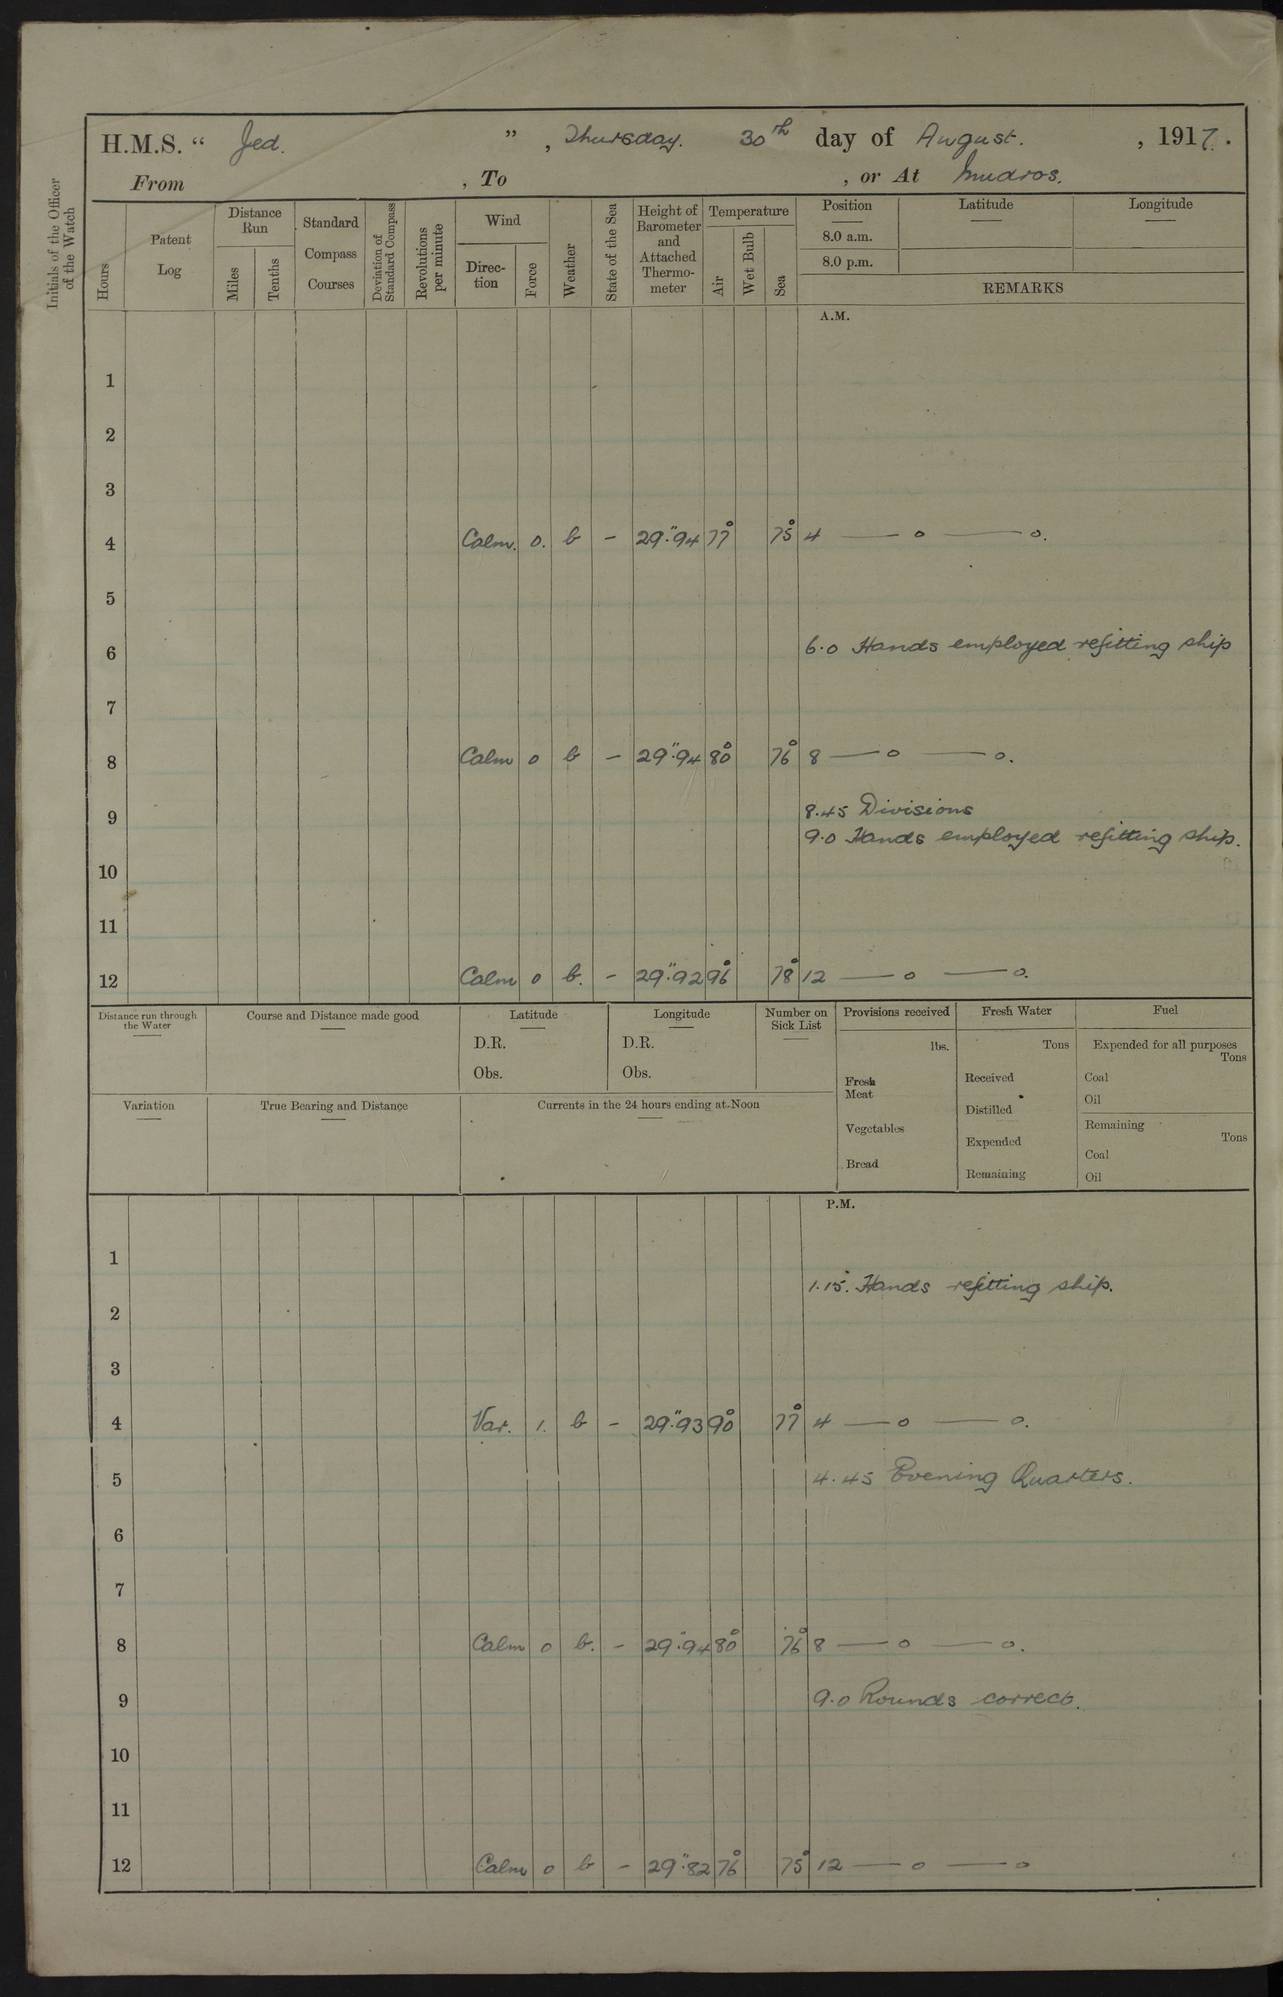 H.M.S. “ Jed. ”, Thursday. 30th day of August. , 1917.
From , To , or At Mudros.
Initials of the Officer of the Watch
Hours
Patent Log
Distance Run
Miles
Tenths
Standard Compass Courses
Deviation of Standard Compass
Revolutions per minute
Wind
Direc-tion
Force
Weather
State of the Sea
Height of Barometer and Attached Thermo-meter
Temperature
Air
Wet Bulb
Sea
Position
8.0 a.m.
8.0 p.m.
Latitude
Longitude
REMARKS
A.M.
1
2
3
4 Calm. 0. b - 29".94 77° 75° 4 — o — o.
5
6 6.0 Hands employed refitting ship
7
8 Calm 0 b - 29".94 80° 76° 8 — o — o.
8.45 Divisions
9 9.0 Hands employed refitting ship.
10
11
12 Calm 0 b. - 29".92 96° 78° 12 — o — o.
Distance run through the Water
Course and Distance made good
Latitude
D.R.
Obs.
Longitude
D.R.
Obs.
Number on Sick List
Provisions received
lbs.
Fresh Meat
Vegetables
Bread
Fresh Water
Tons
Received
Distilled
Expended
Remaining
Fuel
Expended for all purposes
Tons
Coal
Oil
Remaining
Tons
Coal
Oil
Variation
True Bearing and Distance
Currents in the 24 hours ending at Noon
P.M.
1
1.15. Hands refitting ship.
2
3
4 Var. 1. b - 29".93 90° 77° 4 — o — o.
5 4.45 Evening Quarters.
6
7
8 Calm 0 b. - 29".94 80° 76° 8 — o — o.
9 9.0 Rounds correct.
10
11
12 Calm 0 b - 29".82 76° 75° 12 — o — o